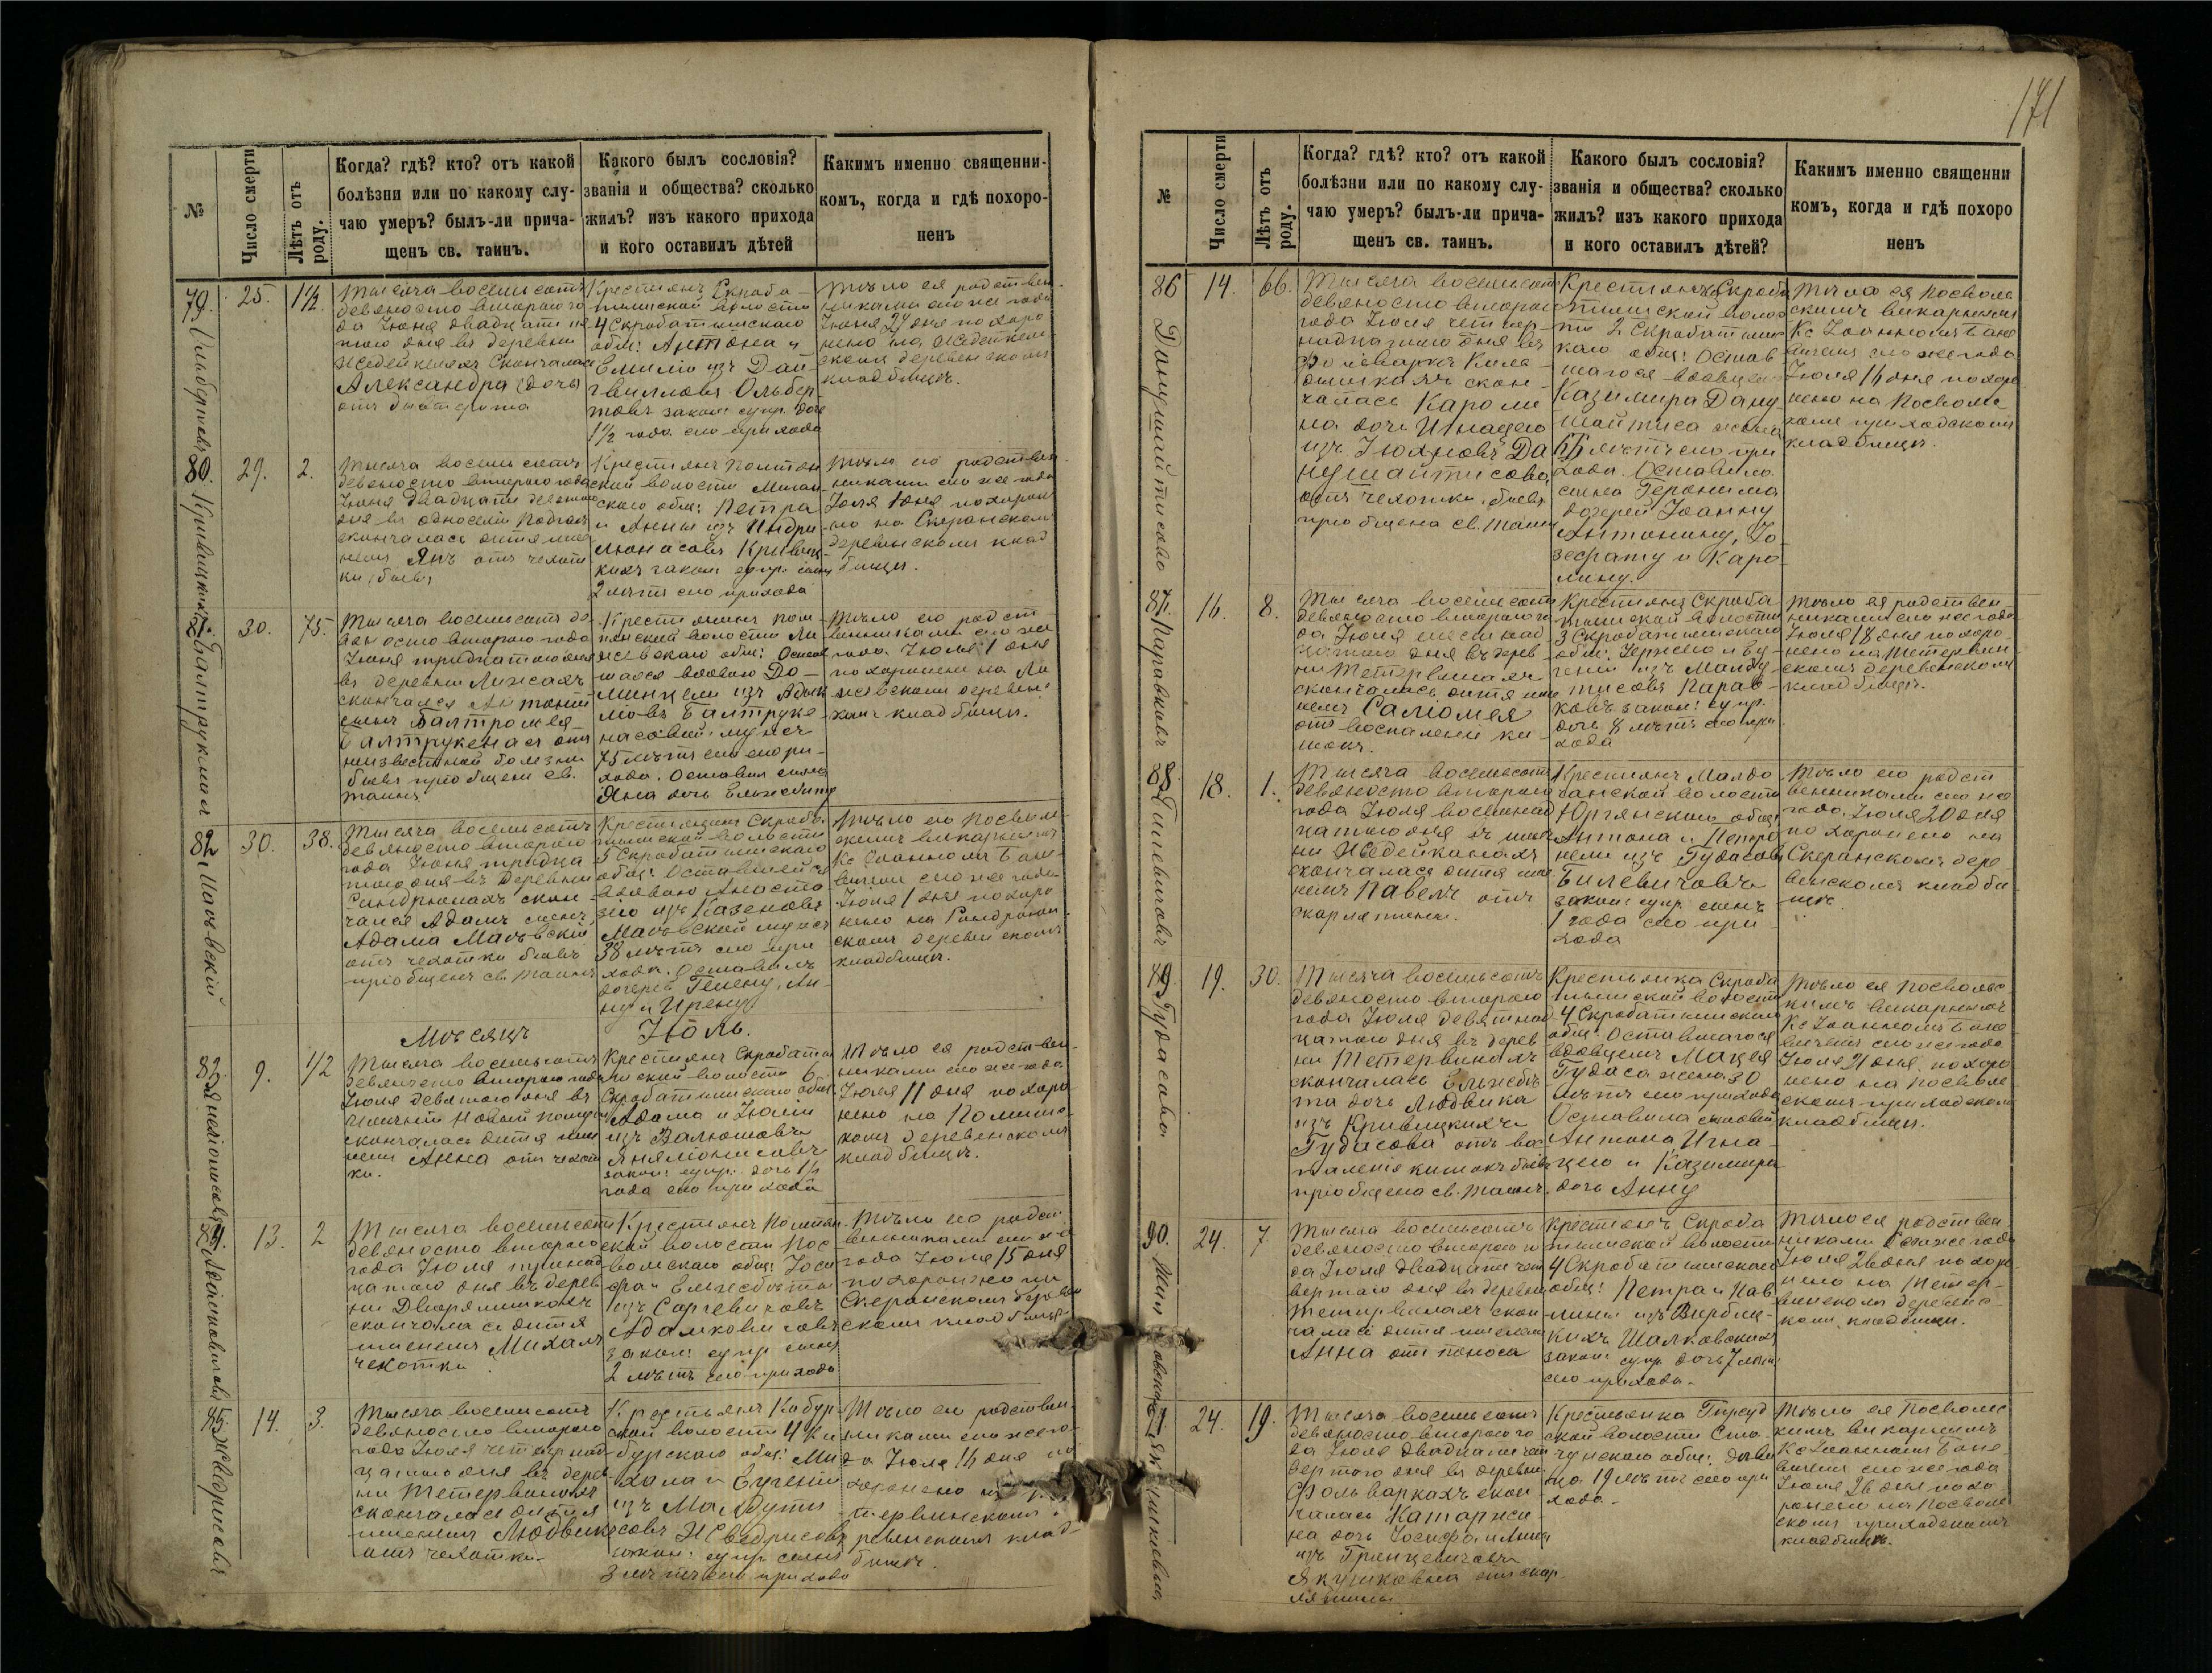 171
№
Число смерти
Лѣтъ отъ роду.
Когда? гдѣ? кто? отъ какой
болѣзни или по какому слу-
чаю умеръ? былъ-ли прича-
щенъ св. таинъ.
Какого былъ сословія?
званія и общества? сколько
жилъ? изъ какого прихода
и кого оставилъ дѣтей
Какимъ именно священни-
комъ, когда и гдѣ похоро-
ненъ
79.
25.
1½
Тысяча восемьсотъ
девяносто втораго го
да Іюня двадцати пя
таго дня въ деревни
скончалась
Александра дочь
отъ дифтерита
Крестьянъ Скроба-
тишской волости
4 Скробатишскаго
общ: Антона и
Емиліи изъ Дай
гвилловъ Ольбер
товъ закон: супр. дочь
1½ года сего прихода
тѣло ея родствен-
никами сего же года
Іюня 27 дня похоро
нено на
скомъ деревенскомъ
кладбищѣ.
80.
29.
2.
Тысяча восемьсотъ
девяносто втораго года
Іюня двадцати девятаго
дня въ односеліи
скончалась дитя име
немъ Янъ отъ чахот
ки
Крестьянъ
ской волости
скаго общ: Петра
и Анны изъ Индри
люнасовъ Кривиц-
кихъ закон: супр: сынъ
2 лѣтъ сего прихода
тѣло его родствен
никами сего же года
Іюля 1 дня похороне
но на Скеранскомъ
деревенскомъ клад
бищѣ.
81.
30.
75.
Тысяча восемьсотъ де
вяносто втораго года
Іюня тридцатаго дня
въ деревни Лижахъ
скончался Антоній
сынъ Балтромея
Балтрукенасъ отъ
неизвестной болезни
бывъ пріобщенъ св.
таинъ
Крестьянинъ
волости
общ: Остав
шаяся вдовою До-
мицели изъ
Балтруке-
мужъ
75 лѣтъ сего при-
хода. Оставилъ сына
Яна дочь Ельжбету
тѣло его родст
венниками сего же
года Іюля 1 дня
похоронено на
деревенс
комъ кладбищѣ.
82.
30.
38.
Тысяча восемьсотъ
девяносто втораго
года Іюня тридца
таго дня въ деревни
скон-
чался Адамъ сынъ
Адама
отъ чахотки бывъ
пріобщенъ св. таинъ
Крестьянинъ Скроба
тишской волости
5 Скробатишскаго
общ: Оставшейся
вдовою Анаста
зію изъ Казеновъ
мужъ
38 лѣтъ сего при
хода. Оставилъ
дочерей Гелену, Ан-
ну и Ирену
Тѣло его Посволь-
скимъ викарнымъ
Кс Іоанномъ Бане
вичемъ сего же года
Іюля 1 дня похоро
нено на
скомъ деревенскомъ
кладбищѣ.
Мѣсяцъ Іюль.
83.
9.
1/2
Тысяча восемьсотъ
девяносто втораго года
Іюля девятаго дня въ
скончалась дитя име
немъ Анна отъ чахот
ки.
Крестьянъ Скробати
шской волости 6
Скробатишскаго общ:
Адама и Юліи
изъ Валюшовъ
закон: супр. дочь 1/2
года сего прихода
Тѣло ея родствен-
никами сего же года
Іюля 11 дня похоро
нено на
комъ деревенскомъ
кладбищѣ.
84.
13.
2
Тысяча восемьсотъ
девяносто втораго
года Іюля тринад
цатаго дня въ дерев
ни Дворялишкахъ
скончалась дитя
именемъ Михалъ
чахотки
Крестьянъ
ской волости Пос-
вольскаго общ: Іоси
фа и Ельжбеты
изъ
Адамковичовъ
закон: супр. сынъ
2 лѣтъ сего прихода
Тѣло его родст
венниками сего же
года Іюля 15 дня
похоронено на
Скеранскомъ деревен
скомъ кладбищѣ
85.
14.
3.
Тысяча восемьсотъ
девяносто втораго
года Іюля четырнад
цатаго дня въ дерев
ни Тетервинахъ
скончалась дитя
именемъ Людвикъ
отъ чахотки.
Крестьянъ Кабур-
ской волости 4 Ка
бурскаго общ: Ми
хала и Евгеніи
изъ Малдути
совъ Жведрисовъ
закон: супр. сынъ
3 лѣтъ сего прихода
Тѣло его родствен-
никами сего же го-
да Іюля 16 дня по
хоронено на
тервинскомъ
ревенскомъ клад-
бищѣ.
№
Число смерти
Лѣтъ отъ роду.
Когда? гдѣ? кто? отъ какой
болѣзни или по какому слу-
чаю умеръ? былъ-ли прича-
щенъ св. таинъ.
Какого былъ сословія?
званія и общества? сколько
жилъ? изъ какого прихода
и кого оставилъ дѣтей?
Какимъ именно священни
комъ, когда и гдѣ похоро
ненъ
86
14.
66.
Данушайтисова
Тысяча восемьсотъ
девяносто втораго
года Іюля четыр-
надцатаго дня въ
фольваркѣ
скон-
чалась Кароли
на дочь Игнацего
изъ Юхновъ Да
нушайтисова
отъ чахотки бывъ
пріобщена св. таинъ
Крестьянка Скроба
тишской волос
ти 2 Скробатишс
каго общ: Остав
шагося вдовцемъ
Казимира Дану-
шайтиса жена
66 лѣтъ сего при
хода. Оставила
сына Геронима
дочерей Іоанну
Антонину, Іо
зефату и Каро
лину.
Тѣло ея Посволь
скимъ викарнымъ
Кс Іоанномъ Бане
вичемъ сего же года
Іюля 16 дня похоро
нено на Посвольс
комъ приходскомъ
кладбищѣ.
87.
16.
8.
Тысяча восемьсотъ
девяносто втораго го
да Іюля шестнад
цатаго дня въ дерев
ни Тетервинахъ
скончалась дитя име
немъ Саломея
отъ воспаленія ки
шокъ.
Крестьянъ Скроба
тишской волости
3 Скробатишскаго
общ: Церинего и Ев
геніи изъ Малду
тисовъ Карав-
ковъ закон: супр.
дочь 8 лѣтъ сего при
хода
Тѣло ея родствен
никами сего же года
Іюля 18 дня похоро
нено на Тетервин
скомъ деревенскомъ
кладбищѣ.
88.
18.
1.
Билевичовъ
Тысяча восемьсотъ
девяносто втораго
года Іюля восемнад
цатаго дня въ
скончалась дитя име
немъ Павелъ отъ
скарлятины.
Крестьянъ
волости
общ:
Антона и Петро
нели изъ Гудасовъ
Билевичовъ
закон: супр. сынъ
1 года сего при-
хода
Тѣло его родст
венниками сего же
года Іюля 20 дня
похоронено на
Скеранскомъ дере
венскомъ кладби
щѣ.
89.
19.
30.
Гудасова
Тысяча восемьсотъ
девяносто втораго
года Іюля девятнад
цатаго дня въ дерев
ни Тетервинахъ
скончалась Ельжбе
та дочь Людвика
изъ Кривицкихъ
Гудасова отъ вос
паленія кишокъ бывъ
пріобщена св. таинъ
Крестьянка Скроба
тишской волости
4 Скробатишскаго
общ: Оставшагося
вдовцемъ Мацея
Гудаса жена 30
лѣтъ сего прихода
Оставила сыновей
Антона Игна
цего и Казимира
дочь Анну
Тѣло ея Посвольс
кимъ викарнымъ
Кс Іоанномъ Бане
вичемъ сего же года
Іюля 21 дня похоро
нено на Посволь
скомъ приходскомъ
кладбищѣ.
90.
24.
7.
Тысяча восемьсотъ
девяносто втораго го
да Іюля двадцати чет
вертаго дня въ деревни
Тетервинахъ скон
чалась дитя именемъ
Анна отъ поноса
Крестьянъ Скроба
тишской волости
4 Скробатишскаго
общ: Петра и Пав
лины изъ Вербиц-
кихъ Шалковскихъ
закон: супр. дочь 7 лѣтъ
сего прихода.
Тѣло ея родствен
никами сего же года
Іюля 26 дня похоро
нено на Тетер-
винскомъ деревенс-
комъ кладбищѣ.
91.
24.
19.
Тысяча восемьсотъ
девяносто втораго го
да Іюля двадцати чет
вертаго дня въ деревни
Фольваркахъ скон
чалась Катаржи-
на дочь Іосифа и Анны
изъ Гринцевичовъ
Якушковна отъ скар
лятины
Крестьянка
ской волости
общ: дѣви
ца 19 лѣтъ сего при
хода.
Тѣло ея Посвольс
кимъ викарнымъ
Кс Іоанномъ Бане-
вичемъ сего же года
Іюля 26 дня похо
ронено на Посволь
скомъ приходскомъ
кладбищѣ.